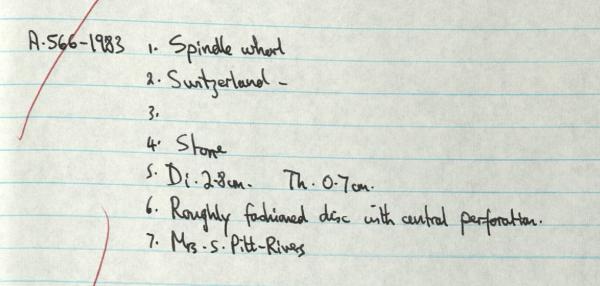 A.566-1983 1. Spindle whorl
2. Switzerland -
3.
4. Stone
5. Di. 2.8cm. Th. 0.7cm.
6. Roughly fashioned disc with central perforation.
7. Mrs. S. Pitt-Rivers